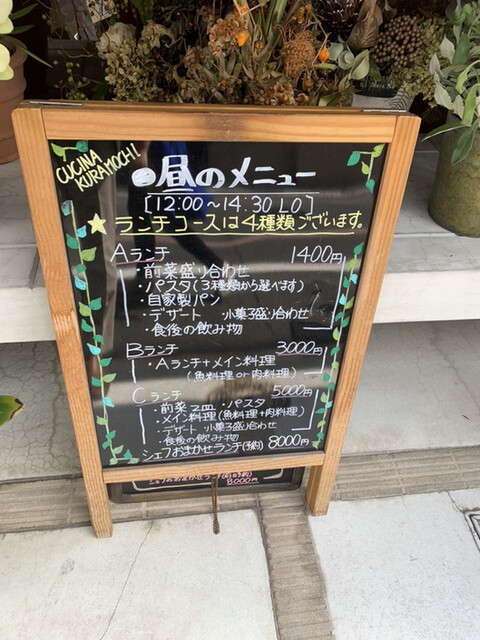 CUCINA
KURAMOCHI
昼のメニュー
[12:00〜14:30 LO]
★ランチコースは4種類ございます。
Aランチ 1400円
・前菜盛り合わせ
・パスタ(3種類から選べます)
・自家製パン
・デザート 小菓子盛り合わせ
・食後の飲み物
Bランチ 3000円
・Aランチ+メイン料理
(魚料理or肉料理)
Cランチ 5000円
・前菜2皿 ・パスタ
・メイン料理(魚料理+肉料理)
・デザート 小菓子盛り合わせ
・食後の飲み物
シェフおまかせランチ(予約) 8000円
8000円